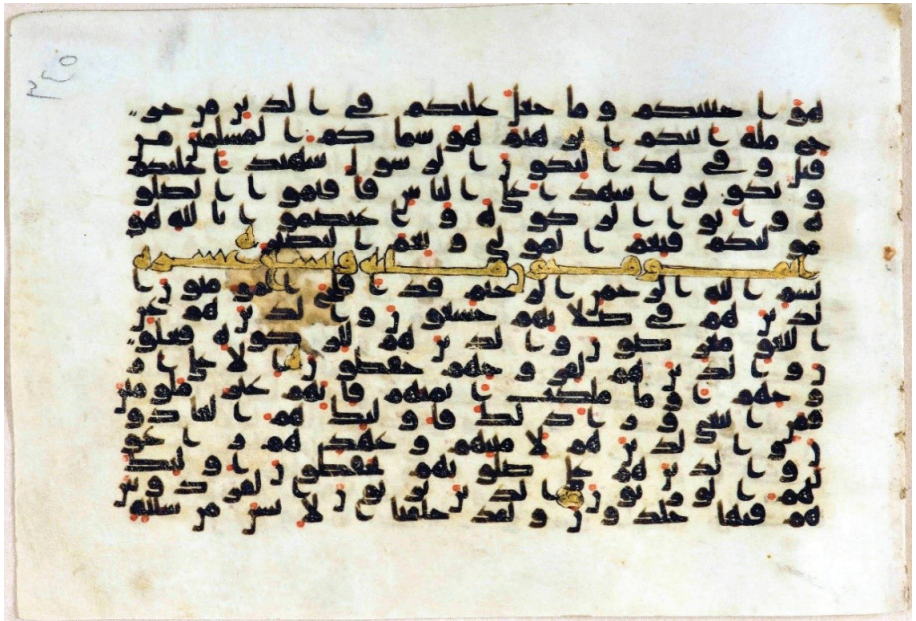 هو اجتبىكم وما جعل عليكم في الدين من حر
ج ملة ابيكم ابرهيم هو سماكم المسلمين من
قبل وفي هذا ليكون الرسول شهيدا عليكم
وتكونوا شهدا على الناس فاقيموا الصلو
ة واتوا الزكوة واعتصموا بالله هو
مولىكم فنعم المولى ونعم النصير
بسم الله الرحمن الرحيم قد افلح المومنون ا
لذين هم في صلاتهم خشعون والذين هم عن
اللغو معرضون والذين هم للزكوة فعلو
ن والذين هم لفروجهم حفظون الا على از
وجهم او ما ملكت ايمنهم فانهم غير ملومين
فمن ابتغى ورا ذلك فاوليك هم العادو
ن والذين هم لامنتهم وعهدهم راعو
ن والذين هم على صلوتهم يحفظون اوليك
هم الورثون الذين يرثون الفردوس
هم فيها خلدون ولقد خلقنا الانسن من سللة